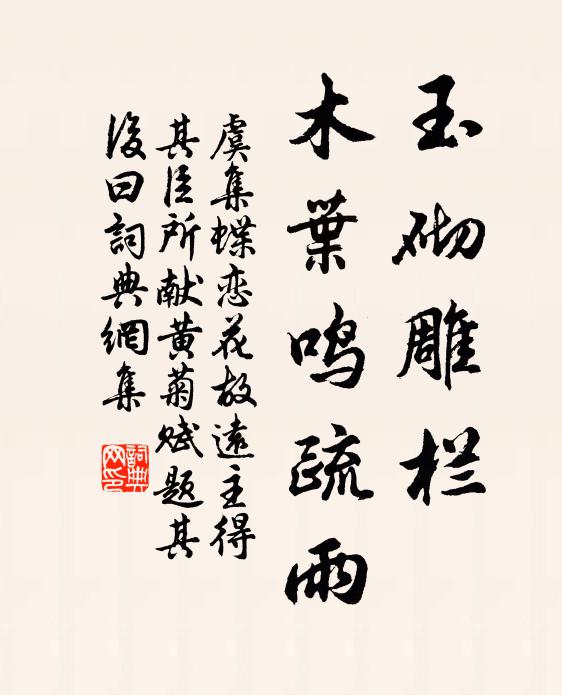 玉砌雕栏
木葉鸣疏雨
虞集蝶恋花故遠主得
其臣所献黄菊赋题其
後曰詞典網集
詞典
网印